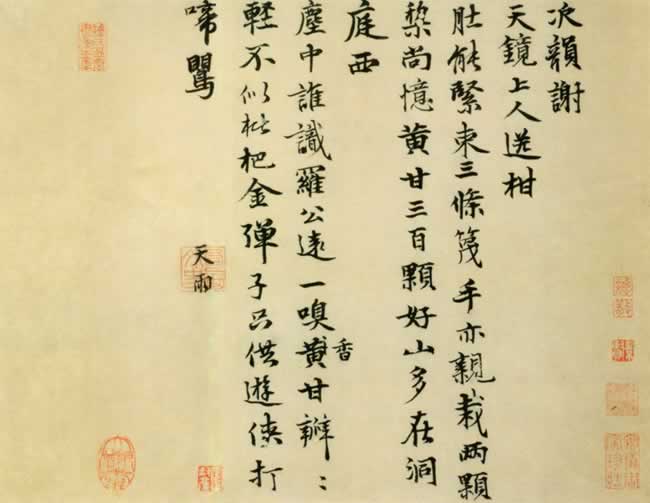 次韻謝
天鏡上人送柑
肚能緊束三條篾手亦親栽兩顆
棃尚憶黄甘三百顆好山多在洞
庭西
塵中誰識羅公遠一嗅黄甘瓣〻
香
輕不似枇杷金彈子只供遊俠打
啼鶯
天雨